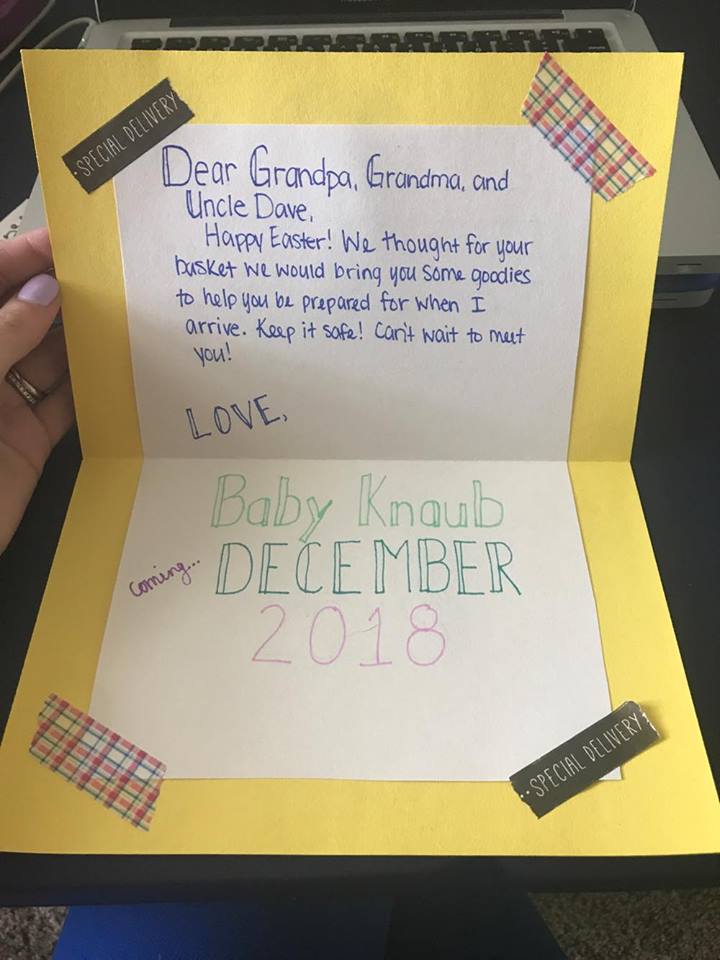 SPECIAL DELIVERY
Dear Grandpa, Grandma, and
Uncle Dave,
Happy Easter! We thought for your
basket we would bring you some goodies
to help you be prepared for when I
arrive. Keep it safe! Can't wait to meet
you!
LOVE,
Baby Knaub
coming... DECEMBER
2018
SPECIAL DELIVERY